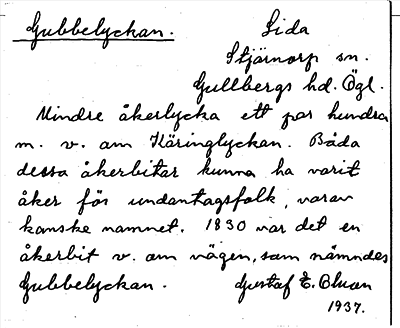 Gubbelyckan. Lida
Stjärnorp sn.
Gullbergs hd. Ögl.
Mindre åkerlycka ett par hundra
m. v. om Käringlyckan. Båda
dessa åkerbitar kunna ha varit
åker för undantagsfolk, varav
kanske namnet. 1830 var det en
åkerbit v. om vägen, som nämndes
Gubbelyckan. Gustaf E. Bluan
1937.